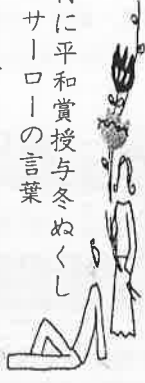 に平和賞授与冬ぬくし
サーローの言葉